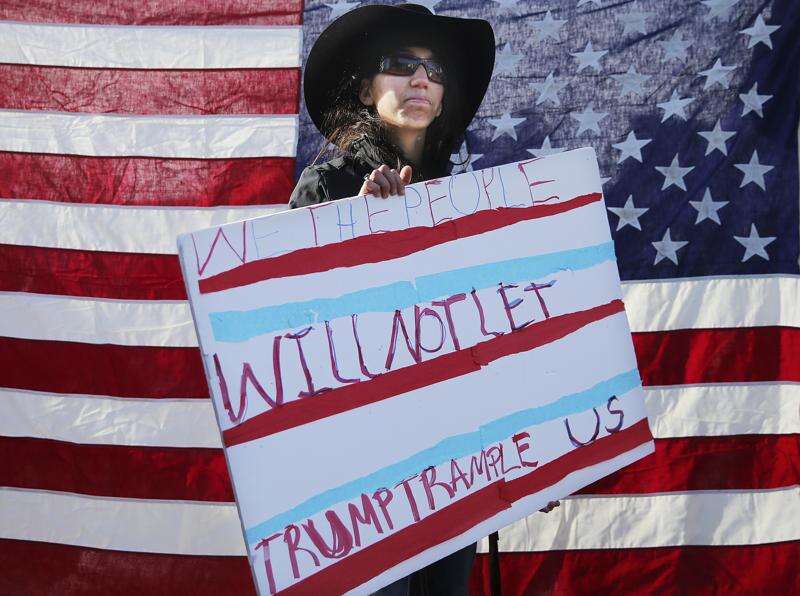 WE THE PEOPLE
WILL NOT LET
TRUMP TRAMPLE US